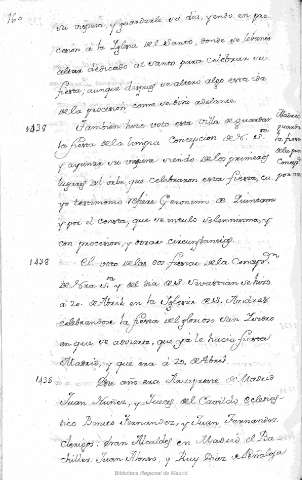 160
su vispera, y guardarle su dia, yendo en pro-
cesion á la Iglesia del Santo, donde se levantó
altar dedicado al Santo para celebrar su
fiesta, aunque despues se altero algo esta
de la procesion como se dira adelante.
1438
Tambien hizo voto esta Villa de guardar
la fiesta de la limpia Concepcion de N. S.ra
y ayunar su vispera siendo de los primeros
lugares del orbe que celebraron esta fiesta, cu-
yo testimonio refiere Geronimo de Quintana
y por él consta, que se instituyo solemnisima, y
con procesion, y otras circunstancias.
Madrid
guarda
la fiesta
de la
Concep.n
por voto
1438
El voto de las dos fiestas de la Concep.n
de Ntra S.ra y del dia de S. Sevastian se hizo
á 20. de Abril en la Iglesia de S. Andres
celebrandose la fiesta del glorioso San Isidro
en que se advierte, que ya le hacia fiesta
Madrid, y que era á 20. de Abril.
1435
Este año era Arcipreste de Madrid
Juan Nuñez, y Jueces del Cavildo eclesias-
tico Benito Fernandez, y Juan Fernandez
clerigos: eran Alcaldes en Madrid el Ba-
chiller Juan Alonso, y Ruy Diaz de Peñalosa
Biblioteca Regional de Madrid